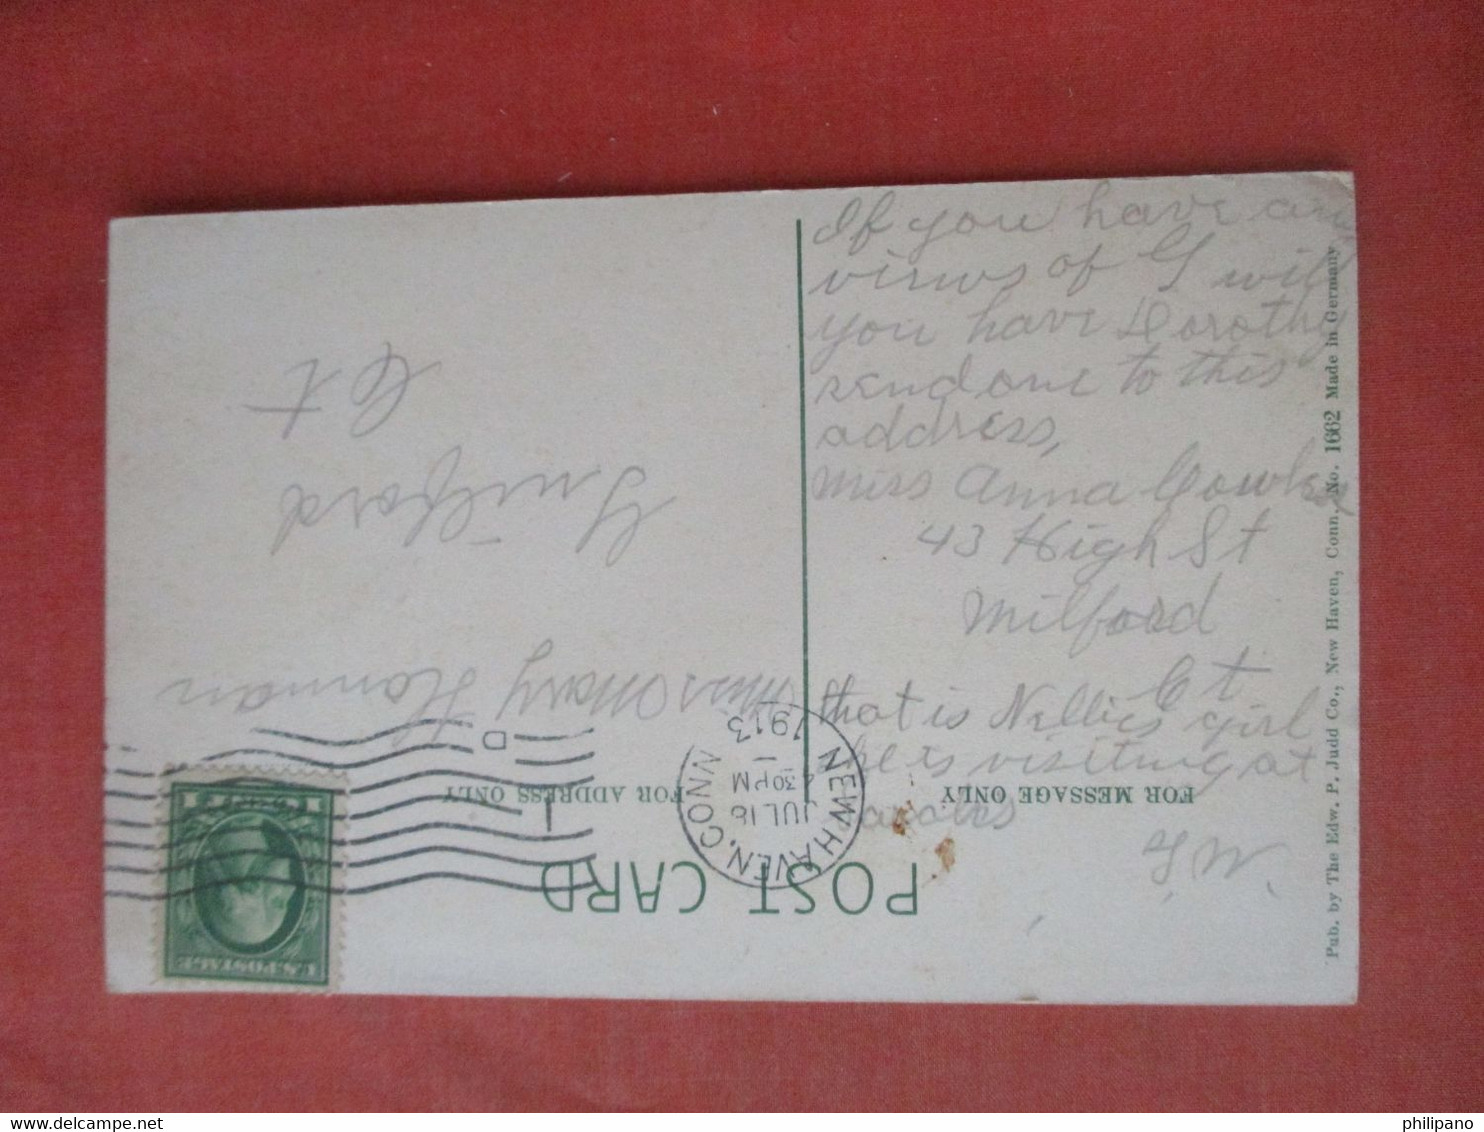 If you have any
views of G will
you have Dorothy
send one to this
address,
Miss Anna Cowles
43 High St
Milford
Ct
that is Nellies girl
he is visiting at
G W.
POST CARD
FOR ADDRESS ONLY
FOR MESSAGE ONLY
NEW HAVEN, CONN.
JUL 16
4 30 PM
1913
D
1
U.S. POSTAGE
1 CENT 1
Miss Mary Honnan
Guilford
Ct
Pub. by The Edw. P. Judd Co., New Haven, Conn. No. 1662 Made in Germany
philipano